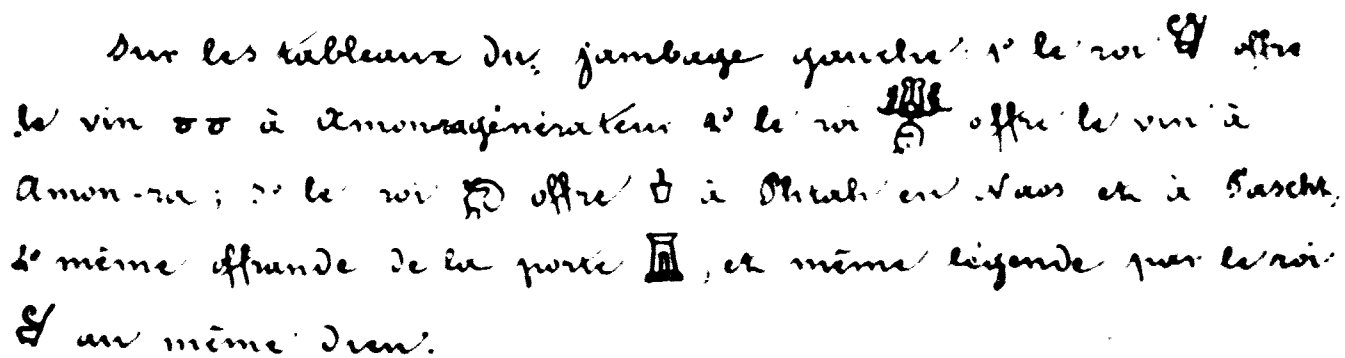 Sur les tableaux du jambage gauche 1° le roi offre
le vin à Amonragénérateur 2° le roi offre le vin à
Amon-ra ; 3° le roi offre à Phtah en Naos et à Pascht,
4° même offrande de la porte , et même légende par le roi
au même dieu.